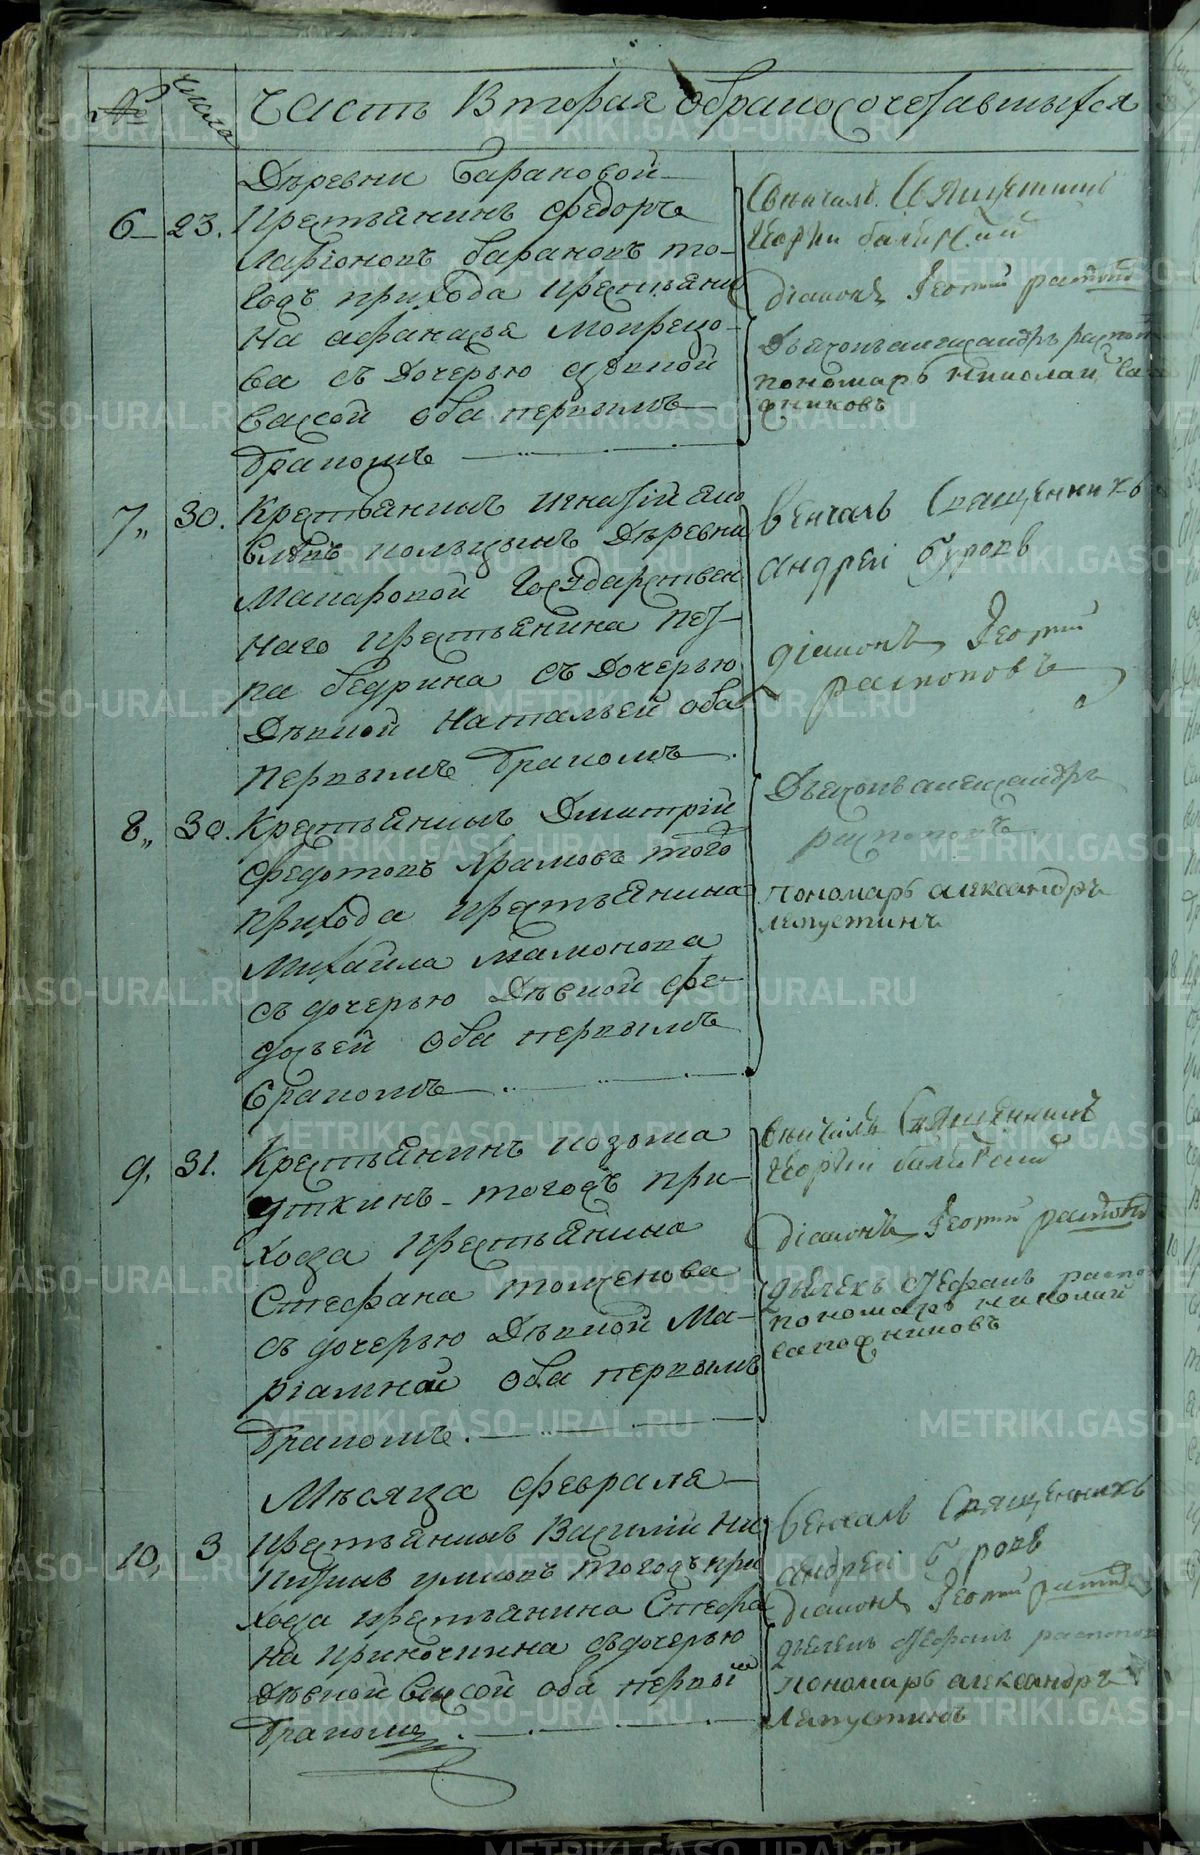 № числа Часть Вторая обракосочетавшыхся
Дѣревни Барановой
6 23. Крестьянинъ Федоръ
Ларіоновъ барановъ то-
гожъ прихода крестьяни
на афанасья Мокрецо-
ва съ Дочерью дѣвкой
Вассой оба первымъ
бракомъ
Венчалъ Священникъ
Георгий
діаконъ Георгий распоповъ
Дьячокъ александръ распоп
пономарь Николай Са
жниковъ
7„ 30. Крестьянинъ игнатій
Дѣревни
Макаровой Государствен
наго крестьянина Пет-
ра бедрина съ Дочерью
Дѣвкой Натальей оба
Первымъ бракомъ
Венчалъ Священникъ
андрей Буровъ
діаконъ Георгий
распоповъ
8„ 30. Крестьянинъ Дмитрій
Федотовъ храмовъ того
прихода крестьянина
Михайла мамонова
съ дочерью Дѣвкой фе-
досьей оба первымъ
бракомъ
Дьячокъ александръ
распоповъ
пономарь александръ
Лапустинъ
9. 31. Крестьянинъ козма
уткинъ тогожъ при-
хода крестьянина
Стефана
съ дочерью Дѣвкой Ма-
ріамной оба первымъ
бракомъ
Венчалъ Священникъ
Георгий
діаконъ Георгий распопов
дьячекъ стефанъ распо
пономарь николай
сапожниковъ
Мѣсяца февраля
10, 3 Крестьянинъ Василий Ни
тогожъ при
хода крестьянина Стефа
на съ дочерью
дѣвкой Вассой оба первый
бракомъ
Венчалъ Священникъ
андрей Буровъ
діаконъ Георгий распопов
дьячекъ стефанъ распопов
пономарь александръ
Лапустинъ
METRIKI.GASO-URAL.RU